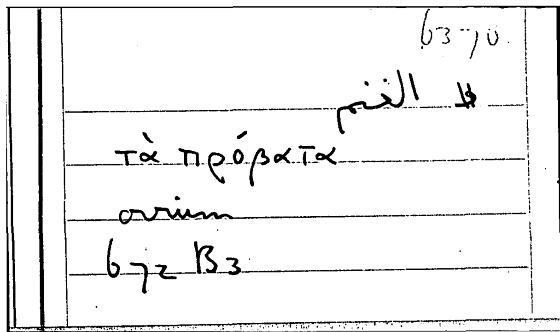 63-70
الغنم
τὰ πρόβατα
ovium
672 B3